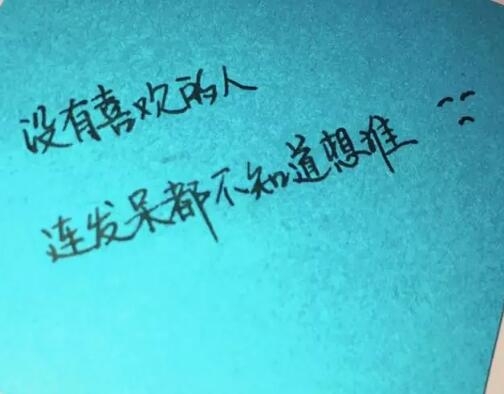 没有喜欢的人
连发呆都不知道想谁